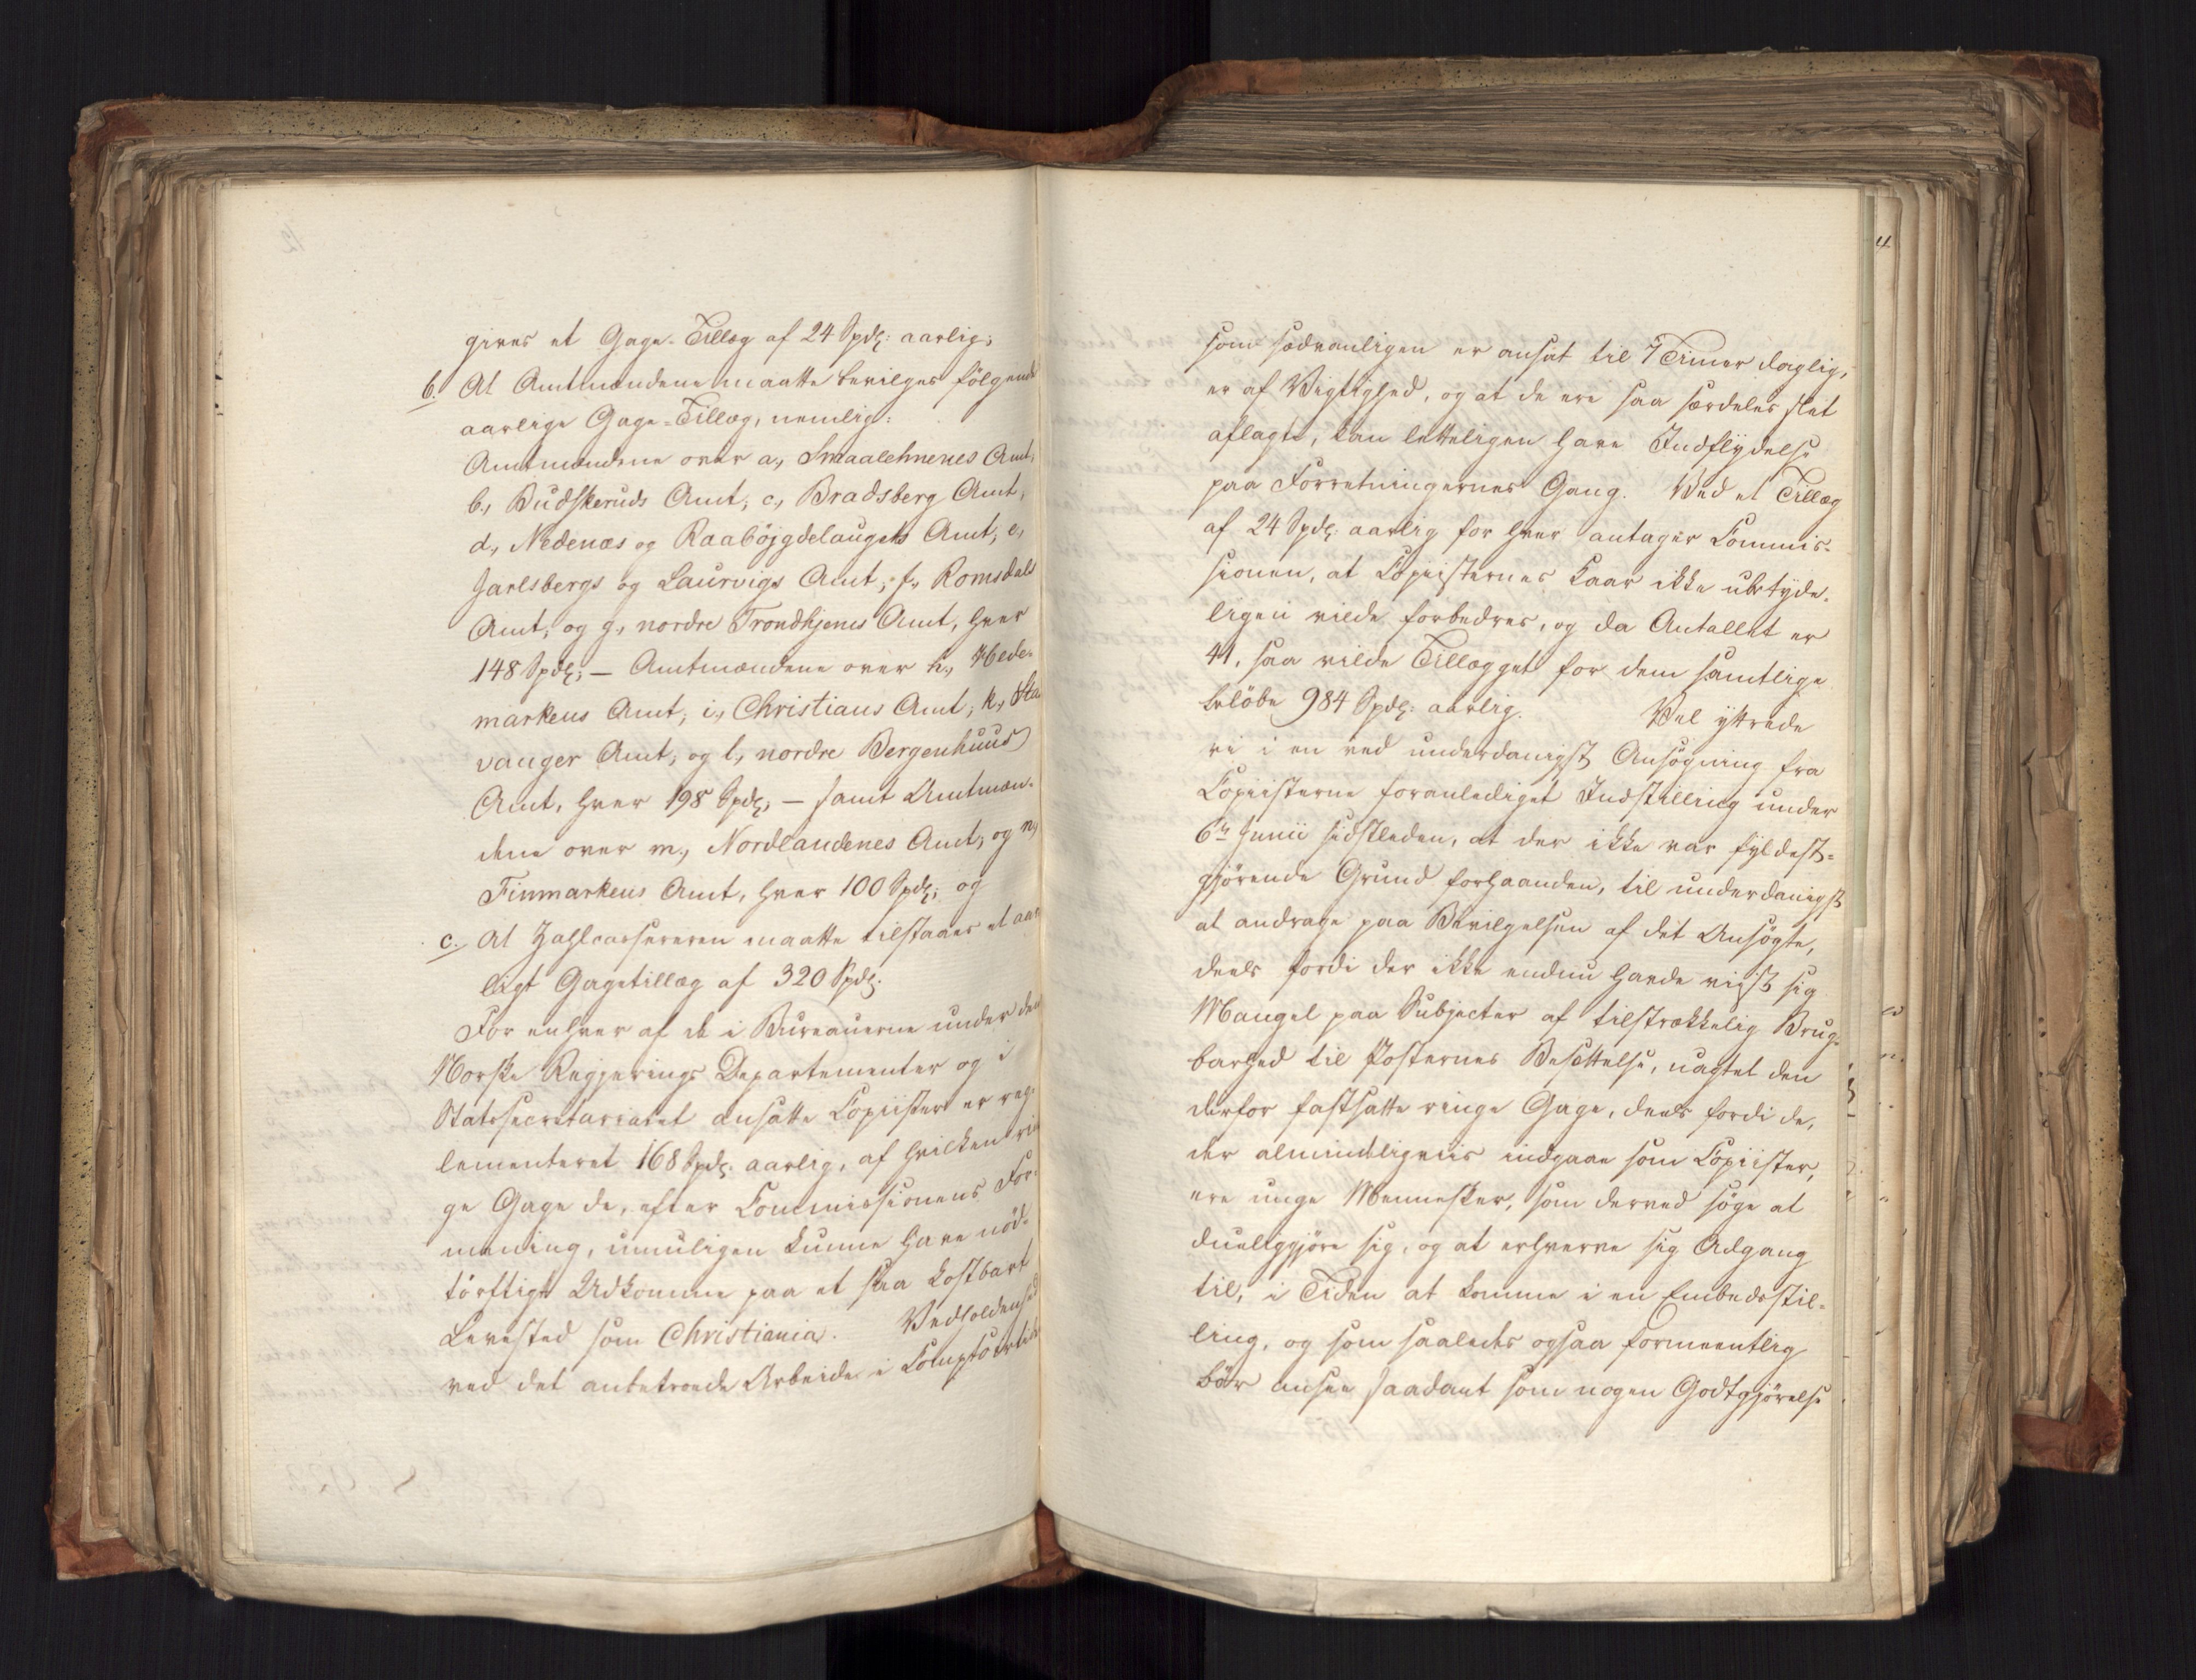 gives et Gage-Tillæg af 24 Spdlr: aarlig;
b. At Amtmændene maatte bevilges følgende
aarlige Gage-Tillæg, nemlig:
Amtmændene over a., Smaalehnenes Amt,
b., Budskeruds Amt; c., Bradsberg Amt,
d., Nedenæs og Raabøjgdelaugets Amt; e.,
Jarlsbergs og Laurvigs Amt; f., Romsdals
Amt, og g., nordre Trondhjems Amt, hver
148 Spdlr; — Amtmændene over h., Hede-
markens Amt; i., Christians Amt; k., Sta
vanger Amt, og l., nordre Bergenhuus
Amt, hver 198 Spdlr; — samt Amtmæn-
dene over m., Nordlandenes Amt; og n.,
Finmarkens Amt, hver 100 Spdlr; og
c. At Zahlcassereren maatte tilstaaes et aar
ligt Gagetillæg af 320 Spdlr.
For enhver af de i Bureauerne under den
Norske Regjerings Departementer og i
Statssecretariatet ansatte Copiister er reg-
lementeret 168 Spdlr. aarlig, af hvilken rin
ge Gage de, efter Commissionens For-
mening, umuligen kunne have nød-
tørftigt Udkomme paa et saa kostbart
Levested som Christiania. Vedholdenhed
ved det anbetroede Arbeide i Comptoirtiden
som sædvanligen er ansat til 7 Timer daglig,
er af Vigtighed, og at de ere saa særdeles slet
aflagte, kan letteligen have Indflydelse
paa Forretningernes Gang. Ved et Tillæg
af 24 Spdlr: aarlig for hver antager Commis-
sionen, at Copiisternes Kaar ikke ubetyde-
ligen vilde forbedres, og da Antallet er
41, saa vilde Tillægget for dem samtlige
beløbe 984 Spdlr: aarlig. Vel yttrede
vi i en ved underdanigst Ansøgning fra
Copiisterne foranlediget Indstilling under
6te Junii sidstleden, at der ikke var fyldest-
gjørende Grund forhaanden, til underdanigst
at andrage paa Bevilgelsen af det Ansøgte,
deels fordi der ikke endnu havde viist sig
Mangel paa Subjecter af tilstrækkelig Brug-
barhed til Posternes Besættelse, uagtet den
derfor fastsatte ringe Gage, deels fordi de,
der almindeligviis indgaae som Copiister,
ere unge Mennesker, som derved søge at
dueliggjøre sig, og at erhverve sig Adgang
til, i Tiden at komme i en Embedsstil-
ling, og som saaledes ogsaa formeentlig
bør ansee saadant som nogen Godtgjørelse